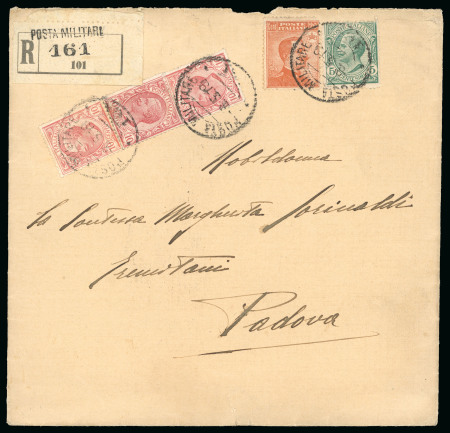 POSTA MILITARE
R 161
101
POSTA MILITARE
Nobildonna
la Contessa Margherita
Eremitani
Padova